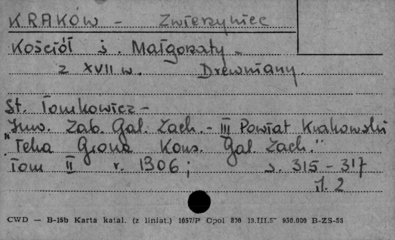 KRAKÓW - Zwierzyniec
Kościół ś. Małgorzaty -
z XVII w. Drewniany.
St. Tomkowicz -
Inw. Zab. Gal. Zach. - III Powiat Krakowski
"Teka Grona Kons. Gal. Zach."
Tom II r. 1906; s. 315 - 317
il. 2
CWD — B-16b Karta katal. (z liniat.) Opol 19.III.5 950.000 B-ZS-55